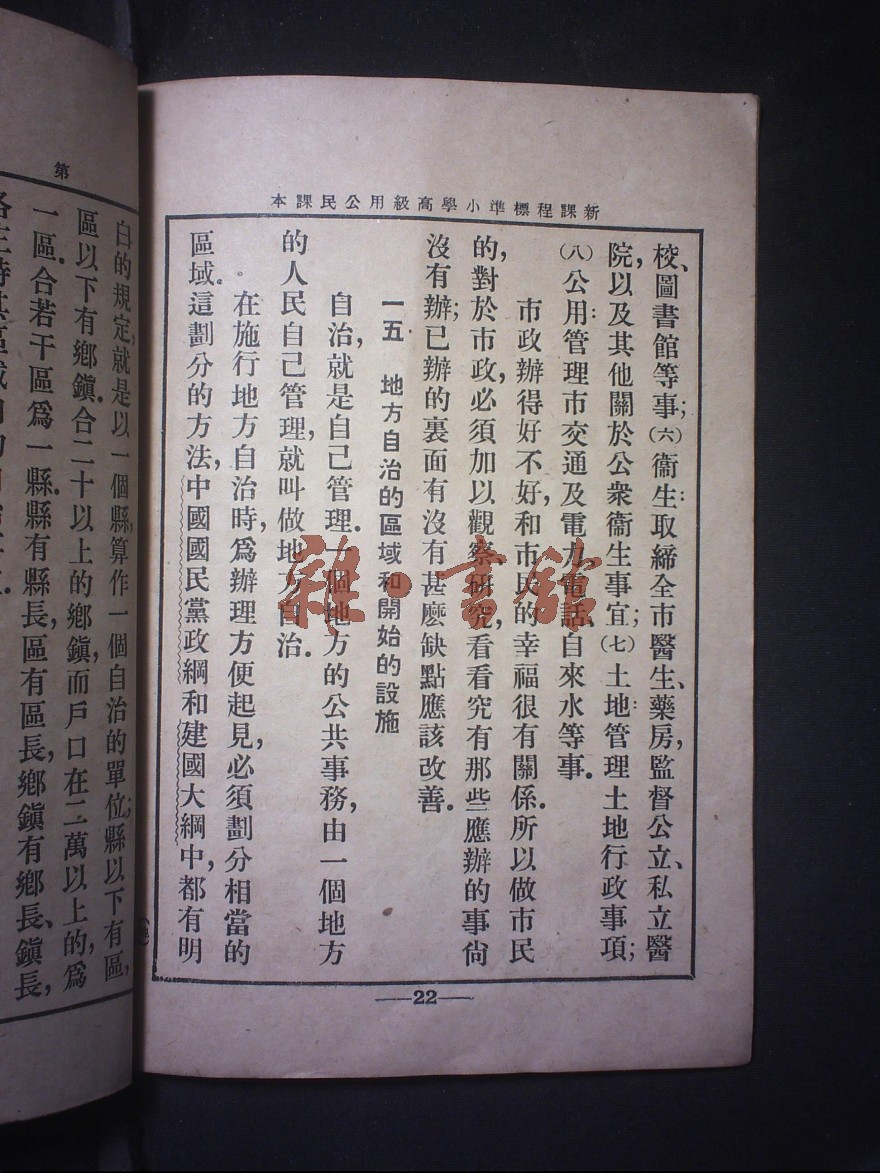 新課程標準小學高級用公民課本
校、圖書館等事；㈥衞生：取締全市醫生、藥房，監督公立、私立醫
院，以及其他關於公衆衞生事宜；㈦土地：管理土地行政事項；
㈧公用：管理市交通及電力、電話、自來水等事．
市政辦得好不好，和市民的幸福很有關係．所以做市民
的，對於市政，必須加以觀察研究，看看究有那些應辦的事尙
沒有辦；已辦的裏面有沒有甚麼缺點應該改善．
一五　地方自治的區域和開始的設施
自治，就是自己管理．一個地方的公共事務，由一個地方
的人民自己管理，就叫做地方自治．
在施行地方自治時，爲辦理方便起見，必須劃分相當的
區域．這劃分的方法，中國國民黨政綱和建國大綱中，都有明
22
第
白的規定，就是以一個縣，算作一個自治的單位；縣以下有區，
區以下有鄕鎭．合二十以上的鄕鎭，而戶口在二萬以上的，爲
一區．合若干區爲一縣．縣有縣長，區有區長，鄕鎭有鄕長、鎭長，
雜·書館